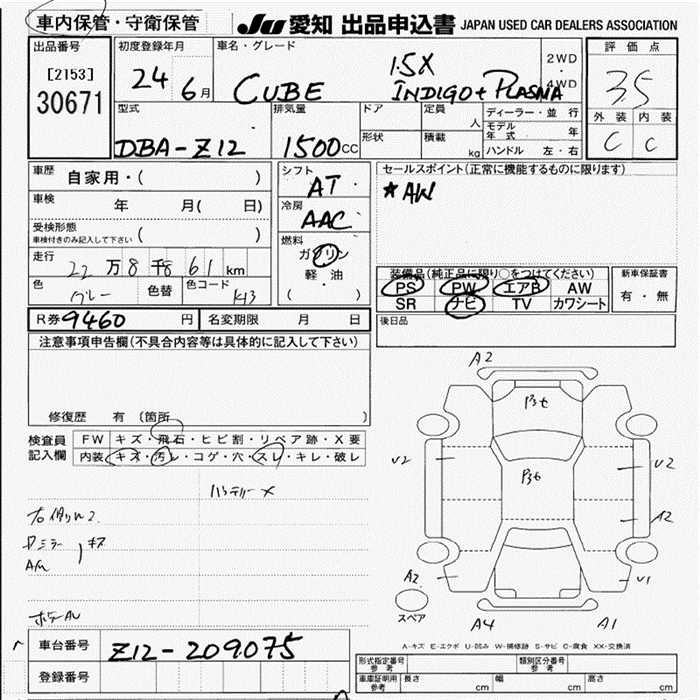 車内保管・守衛保管
JU 愛知 出品申込書 JAPAN USED CAR DEALERS ASSOCIATION
出品番号
[2153]
30671
初度登録年月
24 6月
車名・グレード
CUBE
1.5X
INDIGO+PLASMA
2WD
・
4WD
評価点
3.5
外装 内装
C C
型式
DBA-Z12
排気量
1500cc
ドア
形状
定員 人
積載 kg
ディーラー・並行
モデル年式 年
ハンドル 左・右
車歴 自家用・( )
車検 年 月( 日)
受検形態
車検付きのみ記入して下さい ( )
走行 22万8千861km
色 グレー 色替 色コード
R券 9460円 名変期限 月 日
シフト
AT
冷房
AAC
燃料
ガソリン
軽・油
( ・ )
セールスポイント(正常に機能するものに限ります)
★AW
装備品(純正品に限り○をつけてください)
PS PW エアB AW
SR ナビ TV カワシート
新車保証書
有・無
後日品
注意事項申告欄(不具合内容等は具体的に記入して下さい)
修復歴 有(箇所 )
検査員記入欄
FW キズ・飛石・ヒビ割・リペア跡・X要
内装 キズ・汚レ・コゲ・穴・スレ・キレ・破レ
バッテリー×
キズ
A2
U2 U2
A2
A2 U1
A4 A1
スペア
A-キズ E-エクボ U-凹み W-補修跡 S-サビ C-腐食 XX-交換済
車台番号 Z12-209075
登録番号
形式指定番号
参考
類別区分番号
参考
車庫証明用
参考
長さ cm 幅 cm 高さ cm